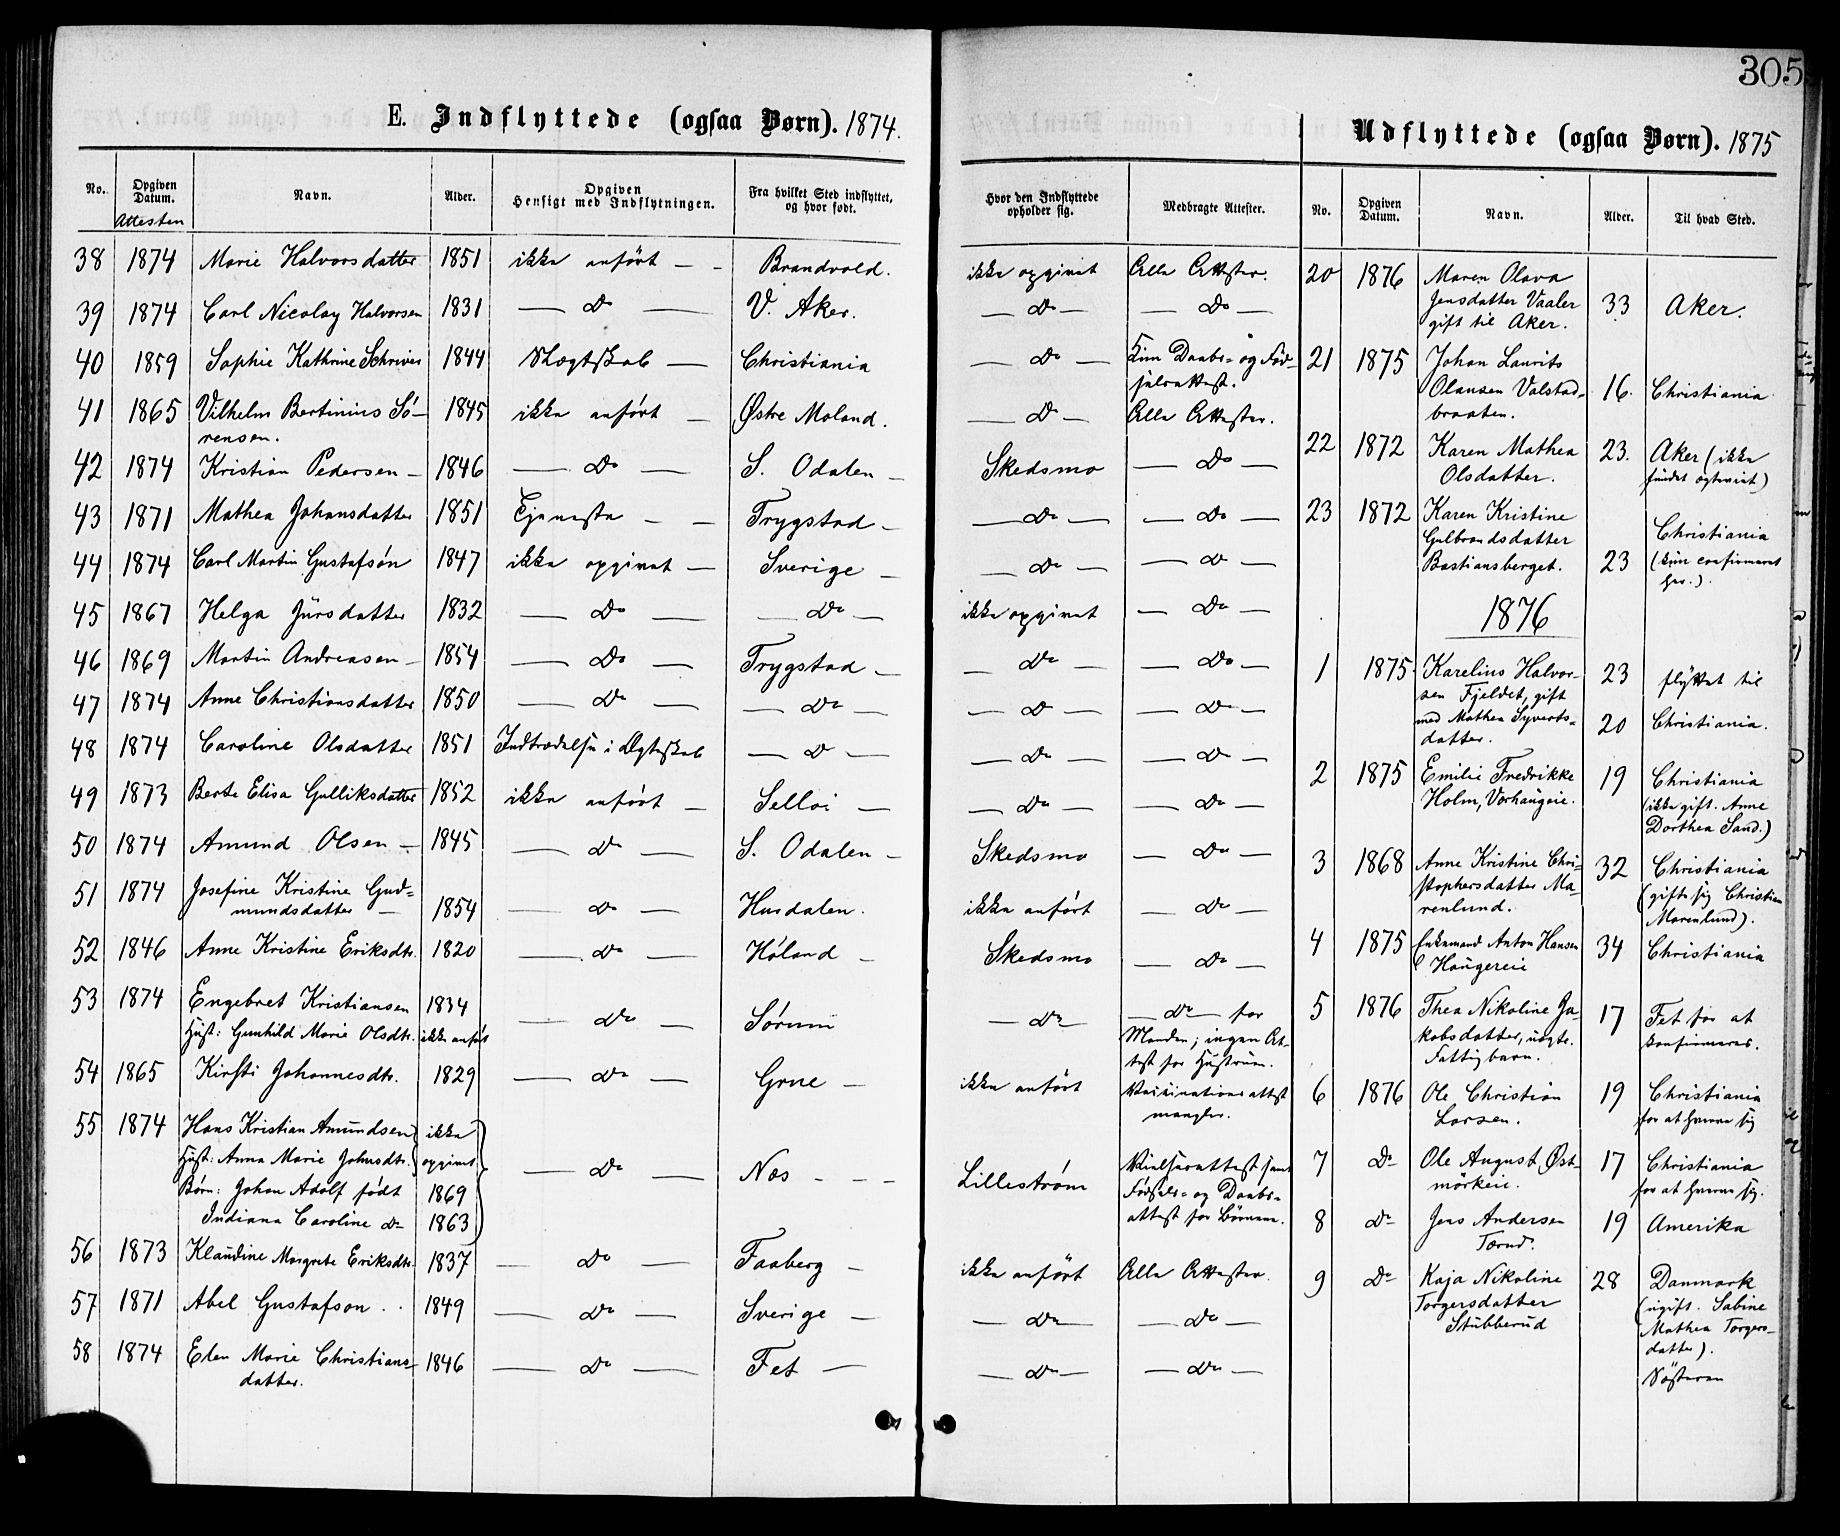 305
E. Indflyttede (ogsaa Børn). 1874.
No. Opgiven Datum. Attesten Navn. Alder. Opgiven Hensigt med Indflytningen. Fra hvilket Sted indflyttet, og hvor født. Hvor den Indflyttede opholder sig. Medbragte Attester.
38 1874 Marie Halvorsdatter 1851 ikke anført — Brandvold. ikke opgivet Alle Attester.
39 1874 Carl Nicolay Halvorsen 1831 — Do — V. Aker. — Do — — Do —
40 1859 Sophie Kathrine Schriver 1844 Slægtskab — Christiania — Do — Kun Daabs- og Fød-
selsattest.
41 1865 Vilhelm Bertinius Sö- 1845 ikke anført — Østre Moland. — Do — Alle Attester.
rensen.
42 1874 Kristian Pedersen — 1846 — Do — S. Odalen — Skedsmo — Do —
43 1871 Mathea Johansdatter 1851 Tjeneste — — Trygstad — — Do — — Do —
44 1874 Carl Martin Gustafsön 1847 ikke opgivet — Sverige — — Do — — Do —
45 1867 Helga Jürsdatter 1832 — Do — — Do — ikke opgivet — Do —
46 1869 Martin Andreasen — 1854 — Do — Trygstad — — Do — — Do —
47 1874 Anne Christiansdatter 1850 — Do — — Do — — Do — — Do —
48 1874 Caroline Olsdatter 1851 Indtrædelse i Ægteskab — Do — — Do — — Do —
49 1873 Berte Elisa Gulliksdatter 1852 ikke anført — Selloi — — Do — — Do —
50 1874 Amund Olsen — 1845 — Do — S. Odalen — Skedsmo — Do —
51 1874 Josefine Kristine Gud-
mundsdatter — 1854 — Do — Hurdalen. ikke anført — Do —
52 1846 Anne Kristine Eriksdtr. 1820 — Do — Höland — Skedsmo — Do —
53 1874 Engebret Kristiansen 1834 — Do — Sørum — Do — — Do — for
Hust: Gunhild Marie Olsdtr. ikke anført Manden; ingen At-
test for Hustruen.
54 1865 Kirsti Johannesdtr. 1829 — Do — Grue — ikke anført Vaccinationsattest
mangler.
55 1874 Hans Kristian Amundsen ikke
Hust: Anna Marie Johnsdtr. opgivet — Do — Nes — — — Lillestrøm Vielsesattest samt
Børn: Johan Adolf født 1869 Fødsels- og Daabs-
Indiana Caroline Do 1863 attest for Börnene.
56 1873 Klaudine Margrete Eriksdtr. 1837 — Do — Faaberg — ikke anført Alle Attester.
57 1871 Abel Gustafson . . 1849 — Do — Sverige — — Do — — Do —
58 1874 Elen Marie Christians- 1846 — Do — Fet — — Do — — Do —
datter.
Udflyttede (ogsaa Børn). 1875
No. Opgiven Datum. Navn. Alder. Til hvad Sted.
20 1876 Maren Olava
Jensdatter Vaaler 33 Aker.
gift til Aker.
21 1875 Johan Laurits
Olausen Valstad- 16. Christiania
braaten.
22 1872 Karen Mathea 23. Aker (ikke
Olsdatter. fundet )
23 1872 Karen Kristine
Gulbrandsdatter Christiania
Bastiansberget. 23 (kun confirmeret
her.).
1876
1 1875 Karelius Halvor- 23 flyttet til
sen Fjeldet, gift
med Mathea Syverts- 20 Christiania.
datter.
2 1875 Emilie Fredrikke 19 Christiania
Holm, Vorhaugeie. (ikke gift. Anne
Dorthea Sand.)
3 1868 Anne Kristine Chri- 32 Christiania
stophersdatter Ma- (gifte sig Christian
renlund. Marenlund).
4 1875 Enkemand Anton Hansen 34 Christiania
Haugereie
5 1876 Thea Nikoline Ja- 17 Fet for at
kobsdatter, uægte. konfirmeres.
Fattigbarn.
6 1876 Ole Christian 19 Christiania
Larsen. for at ernære sig
7 Do Ole August Øst- 17 Christiania
mörkeie. for at ernære sig.
8 Do Jens Andersen 19 Amerika
Tærud.
9 Do Kaja Nikoline 28 Danmark
Torgersdatter (ugift. Sabine
Stubberud Mathea Torgers-
datter).
Søsteren